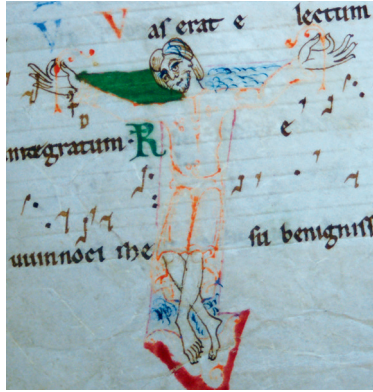 V as erat e lectum
integratum. R e
ihe su benigniss